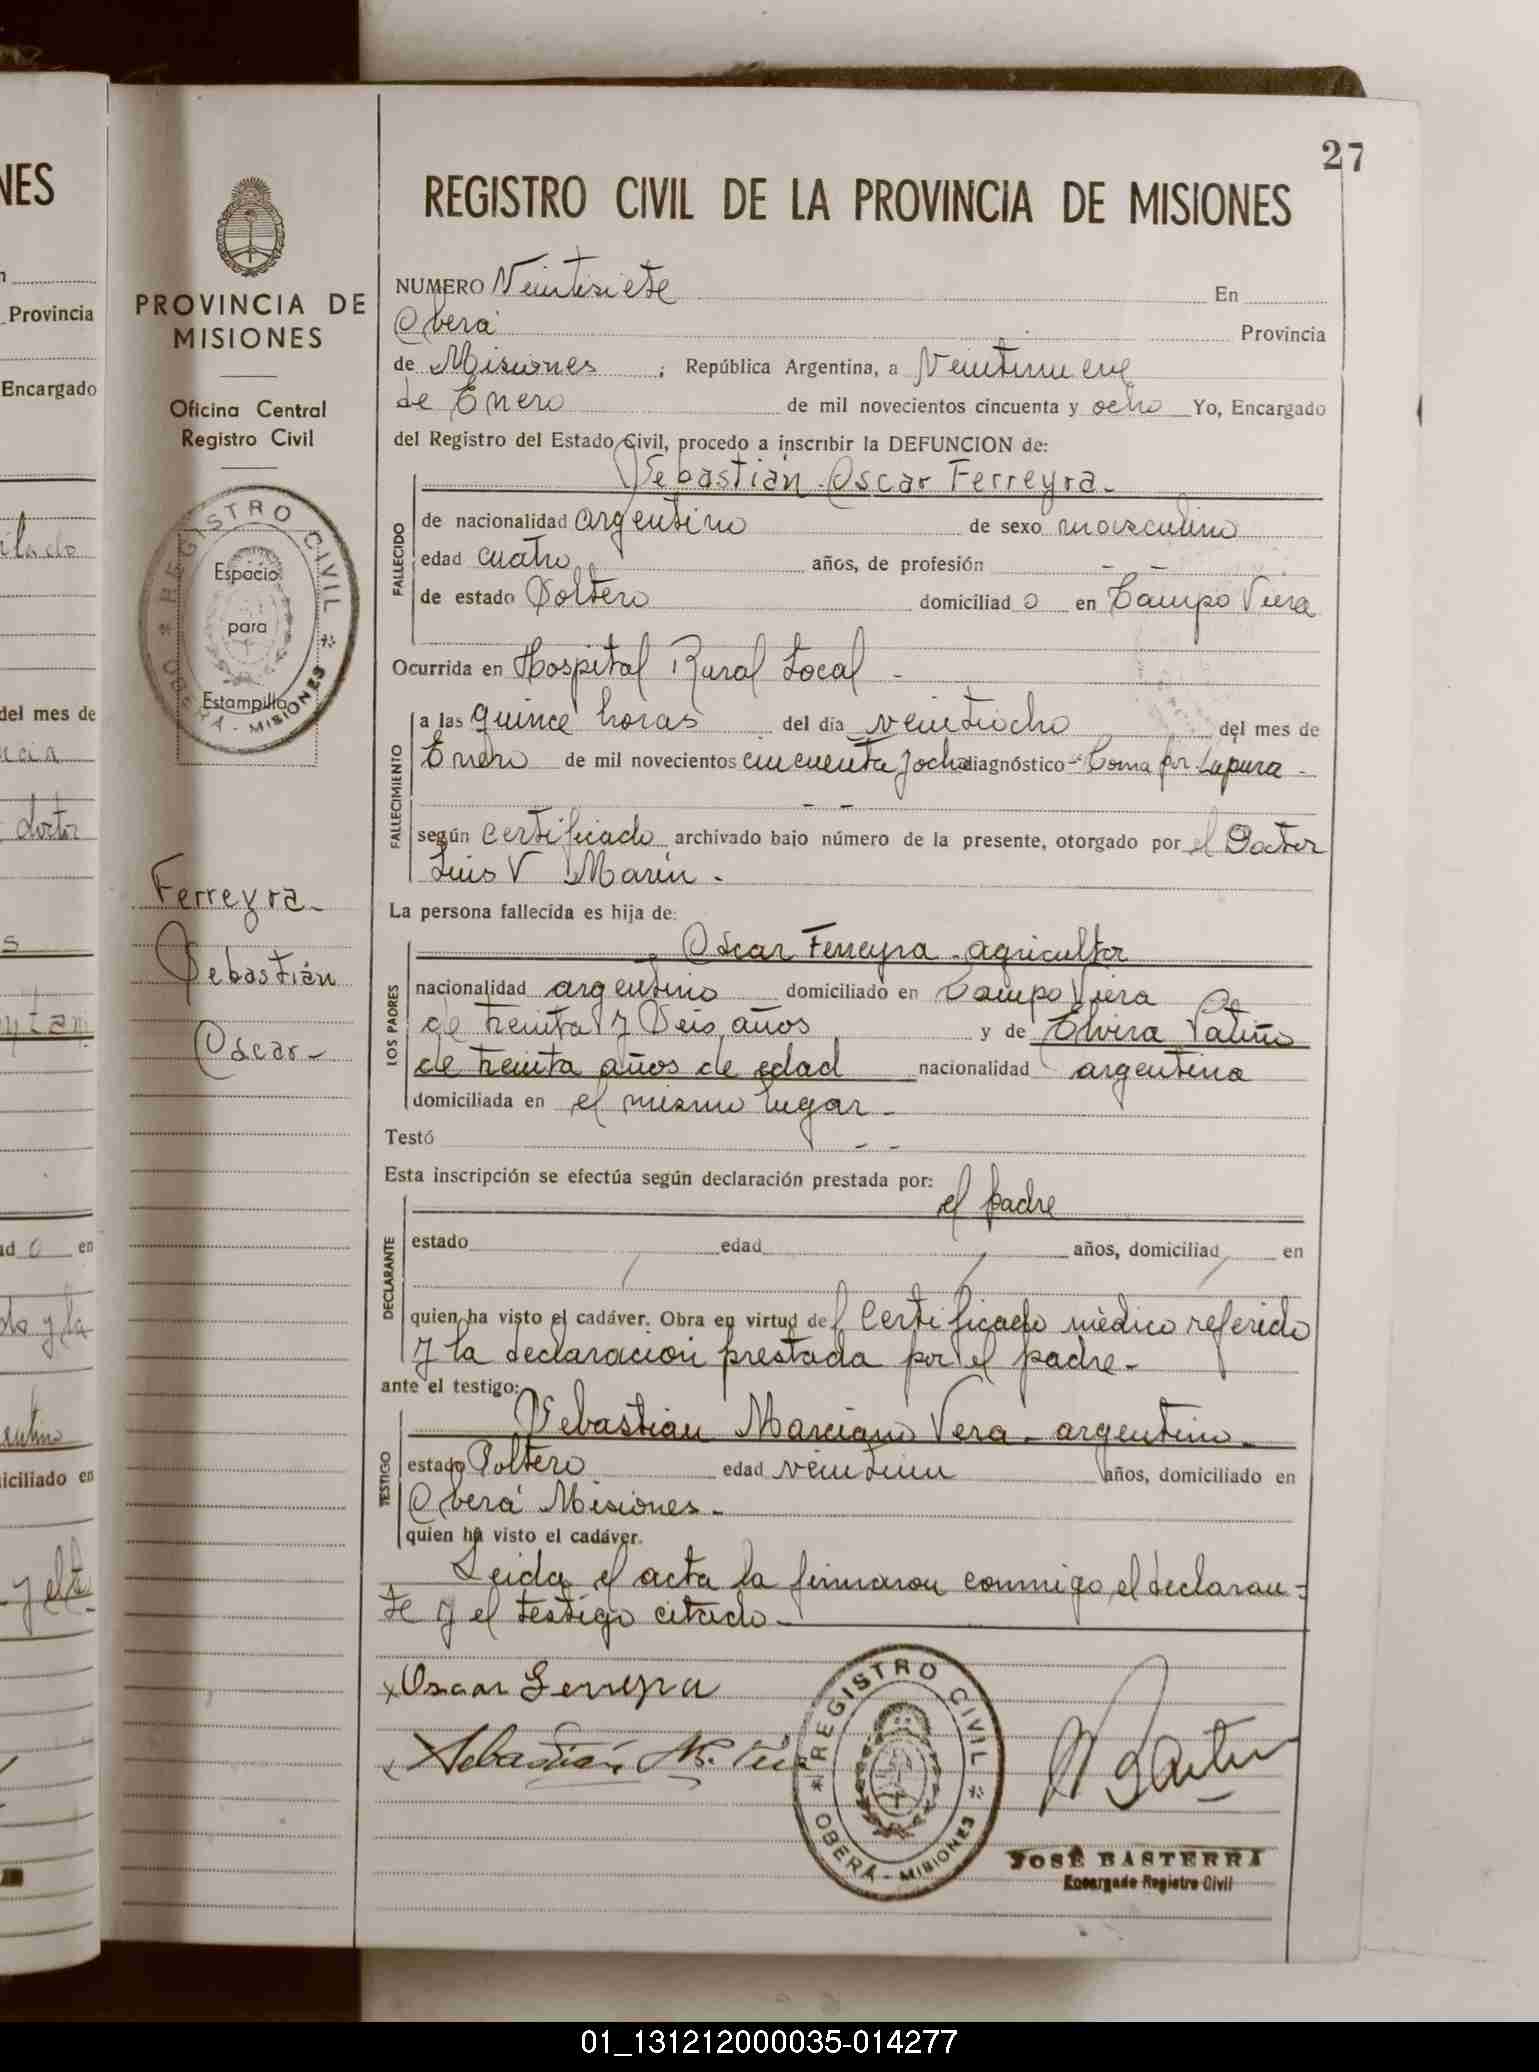 27
REGISTRO CIVIL DE LA PROVINCIA DE MISIONES
NUMERO Veintisiete En
Oberá Provincia
de Misiones ; República Argentina, a Veintinueve
de Enero de mil novecientos cincuenta y ocho Yo, Encargado
del Registro del Estado Civil, procedo a inscribir la DEFUNCION de:
Sebastián Oscar Ferreyra.-
FALLECIDO
de nacionalidad argentino de sexo masculino
edad cuatro años, de profesión - -
de estado Soltero domiciliad o en Campo Viera
Ocurrida en Hospital Rural Local -
FALLECIMIENTO
a las quince horas del día veintiocho del mes de
Enero de mil novecientos cincuenta y ocho diagnóstico Coma por -
- -
según certificado archivado bajo número de la presente, otorgado por el Doctor
Luis V Marin -
La persona fallecida es hija de:
LOS PADRES
Oscar Ferreyra - agricultor
nacionalidad argentino domiciliado en Campo Viera
de treinta y Seis años y de Elvira Patiño
de treinta años de edad nacionalidad argentina
domiciliada en el mismo lugar -
Testó - -
Esta inscripción se efectúa según declaración prestada por: el padre
DECLARANTE
estado edad años, domiciliad en
quien ha visto el cadáver. Obra en virtud del certificado médico referido
y la declaración prestada por el padre -
ante el testigo:
TESTIGO
Sebastian Marciano Vera - argentino -
estado Soltero edad veintiun años, domiciliado en
Oberá Misiones -
quien ha visto el cadáver.
Leida el acta la firmaron conmigo el declaran=
te y el testigo citado -
x Oscar Ferreyra
x Sebastián M. Vera
REGISTRO CIVIL
OBERÁ - MISIONES
JOSÉ BASTERRA
Encargado Registro Civil
PROVINCIA DE
MISIONES
Oficina Central
Registro Civil
REGISTRO CIVIL
OBERÁ - MISIONES
Espacio
para
Estampilla
Ferreyra -
Sebastián
Oscar -
NES
Provincia
Encargado
del mes de
doctor
ad o en
iciliado en
01_131212000035-014277